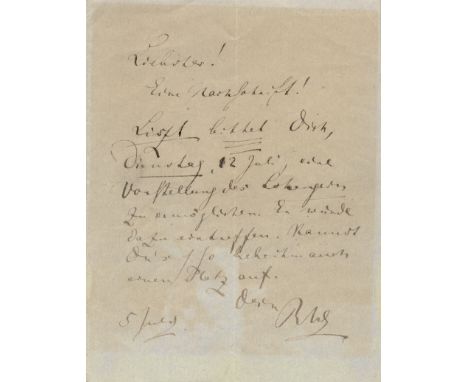 Liebster!
Eine Nachschrift!
Liszt bittet Dich,
Dienstag, 12 Juli, eine
Vorstellung des Lohengrin
zu ermöglichen. Er würde
dazu eintreffen. Kannst
Du's, so
einen Platz auf.
Dein
5 Juli